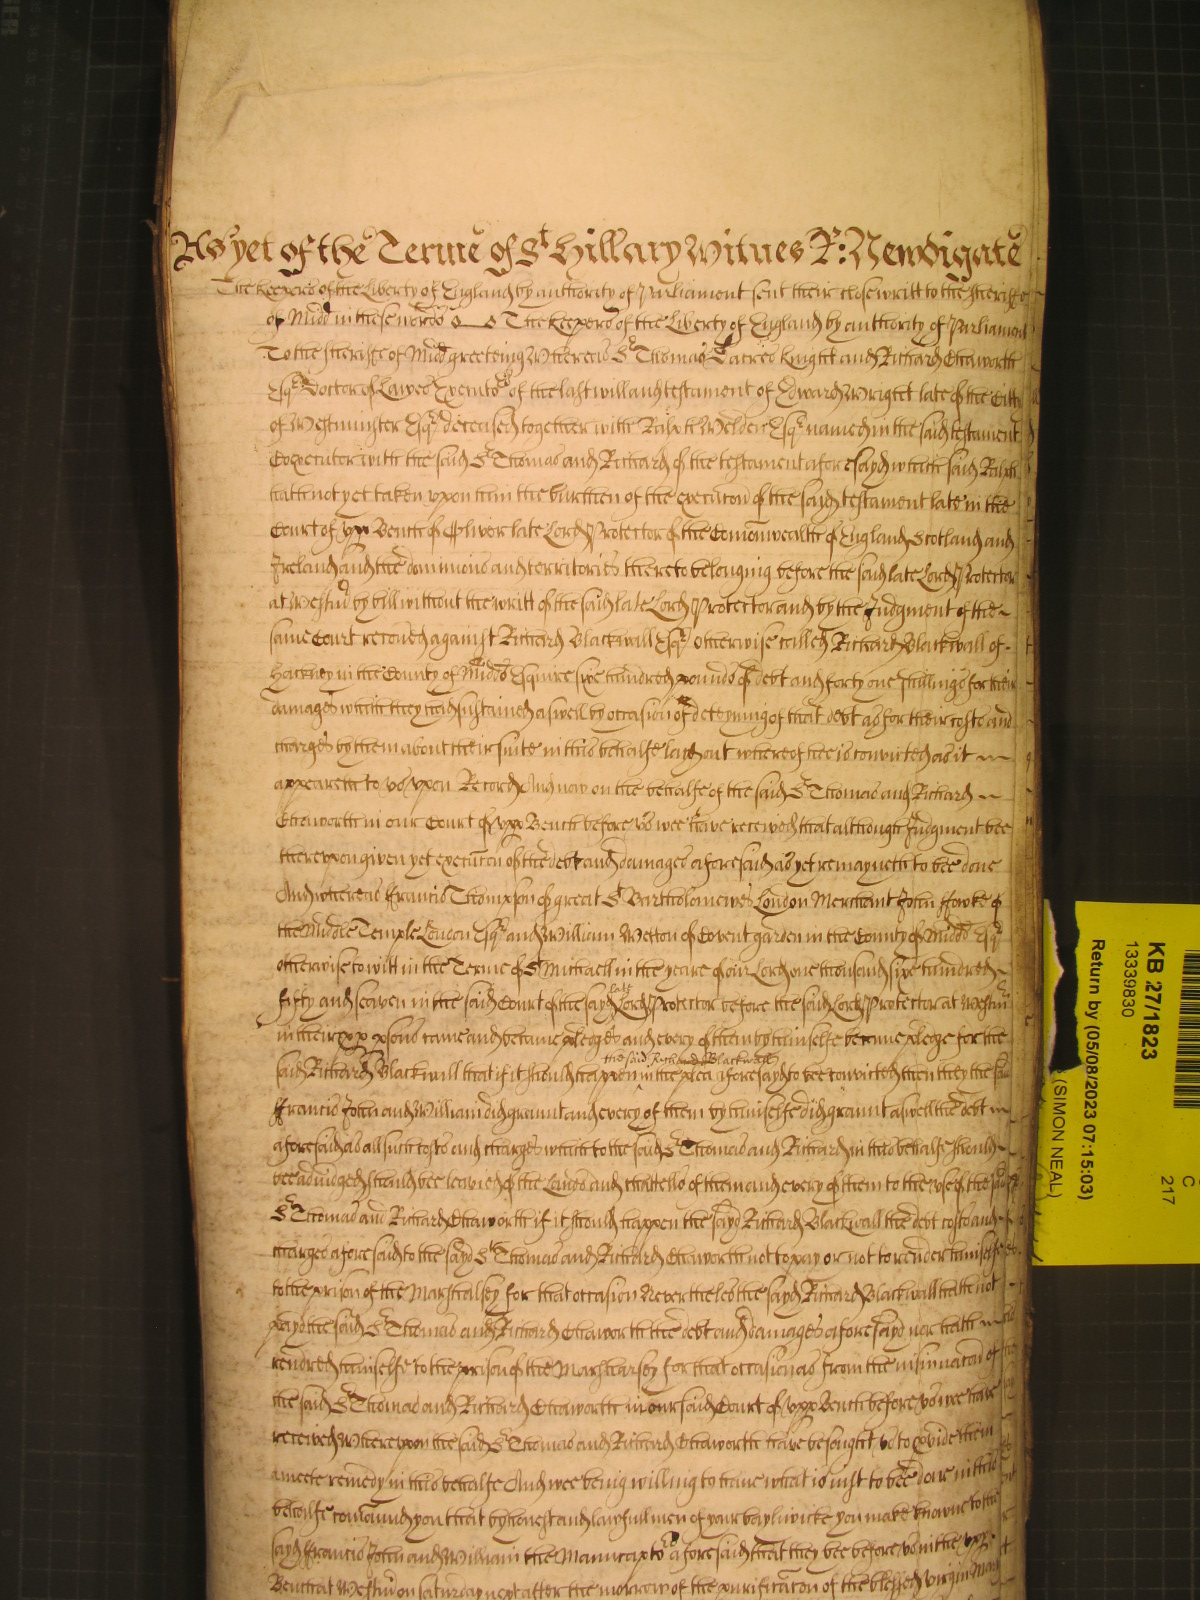 As yet of the Terme of St Hillary Witnes R: Newdigate
The Keepers of the Liberty of England by authority of Parliament sent their close writt to the Sheriffe
of Midd in these words The Keepers of the Liberty of England by authority of Parliament
To the Sheriffe of Midd greeteing Whereas Sr Thomas Knight and Richard Chaworth
Esqr Doctor of Lawes Executors of the last will and testament of Edward Wright late of the Citty
of Westminster Esqr deceased together with Ralph Welden Esqr named in the said testament
Coexecutor with the said Sr Thomas and Richard of the testament aforesayd which said Ralph
hath not yet taken upon him the burthen of the execucon of the said testament late in the
Court of upp Bench of Oliver late Lord Protector of the Comonwealth of England Scotland and
Ireland and the dominions and territories thereto belonging before the said late Lord Protector
at Westmr by bill without the writt of the said late Lord Protector and by the Judgment of the
same Court recoved against Richard Blackwall Esqr otherwise called Richard Blackwall of
Hackney in the County of Midds Esquire sixe hundred pounds of debt and forty one shillings for their
damages which they had susteined aswell by occasion of deteyning of that debt as for their costs and
charges by them about their suite in this behalfe layd out whereof hee is convicted as it
appeareth to us upon Record And now on the behalfe of the said Sr Thomas and Richard
Chaworth in our Court of upp Bench before us wee have received that although Judgment bee
thereupon given yet execucon of the debt and damages aforesaid as yet remayneth to bee done
And whereas Francis Thompson of great St Bartholomewes London Merchant John ffowke of
the Middle Temple London Esqr and William Wetton of Covent garden in the County of Midd Esqr
otherwise to witt in the Terme of St Michaell in the yeare of our Lord one thousand sixe hundred
fifty and seaven in the said Court of the sayd late Lord Protector before the said Lord Protector at Westmr
in their pp psons came and became pledges and every of them by himselfe became pledge for the
said Richard Blackwall that if it should happen the said Richard Blackwall in the plea aforesayd to bee convicted then they the said
Francis John and William did graunt and every of them by himselfe did graunt aswell the debt
aforesaid as all such costs and charges which to the said Sr Thomas and Richard in this behalfe should
bee adiudged should bee leavied of the Lands and chattells of them and every of them to the use of the said
Sr Thomas and Richard Chaworth if it should happen the sayd Richard Blackwall the debt costs and
charges aforesaid to the sayd Sr Thomas and Richard Chaworth not to pay or not to render himselfe
to the prison of the Marshalsey for that occasion Neverthelesse the sayd Richard Blackwall hath not
payd the said Sr Thomas and Richard Chaworth the debt and damages aforesayd nor hath
rendred himselfe to the prison of the Marshalsey for that occasion as from the insinuacon of
the said Sr Thomas and Richard Chaworth in our said Court of upp Bench before us wee have
received Whereupon the said Sr Thomas and Richard Chaworth have besought us to pvide them
a meete remedy in this behalfe And wee being willing to have what is iust to bee done in this
behalfe comaund you that by honest and lawfull men of your baylywicke you make knowne to the
sayd Francis John and William the Manucaptors aforesaid that they bee before us in the upp
Bench at Westmr on Saturday next after the morrow of the purificacon of the blessed virgin Mary
KB 27/1823
13339830
Return by (05/08/2023 07:15:03)
(SIMON NEAL)
C
217